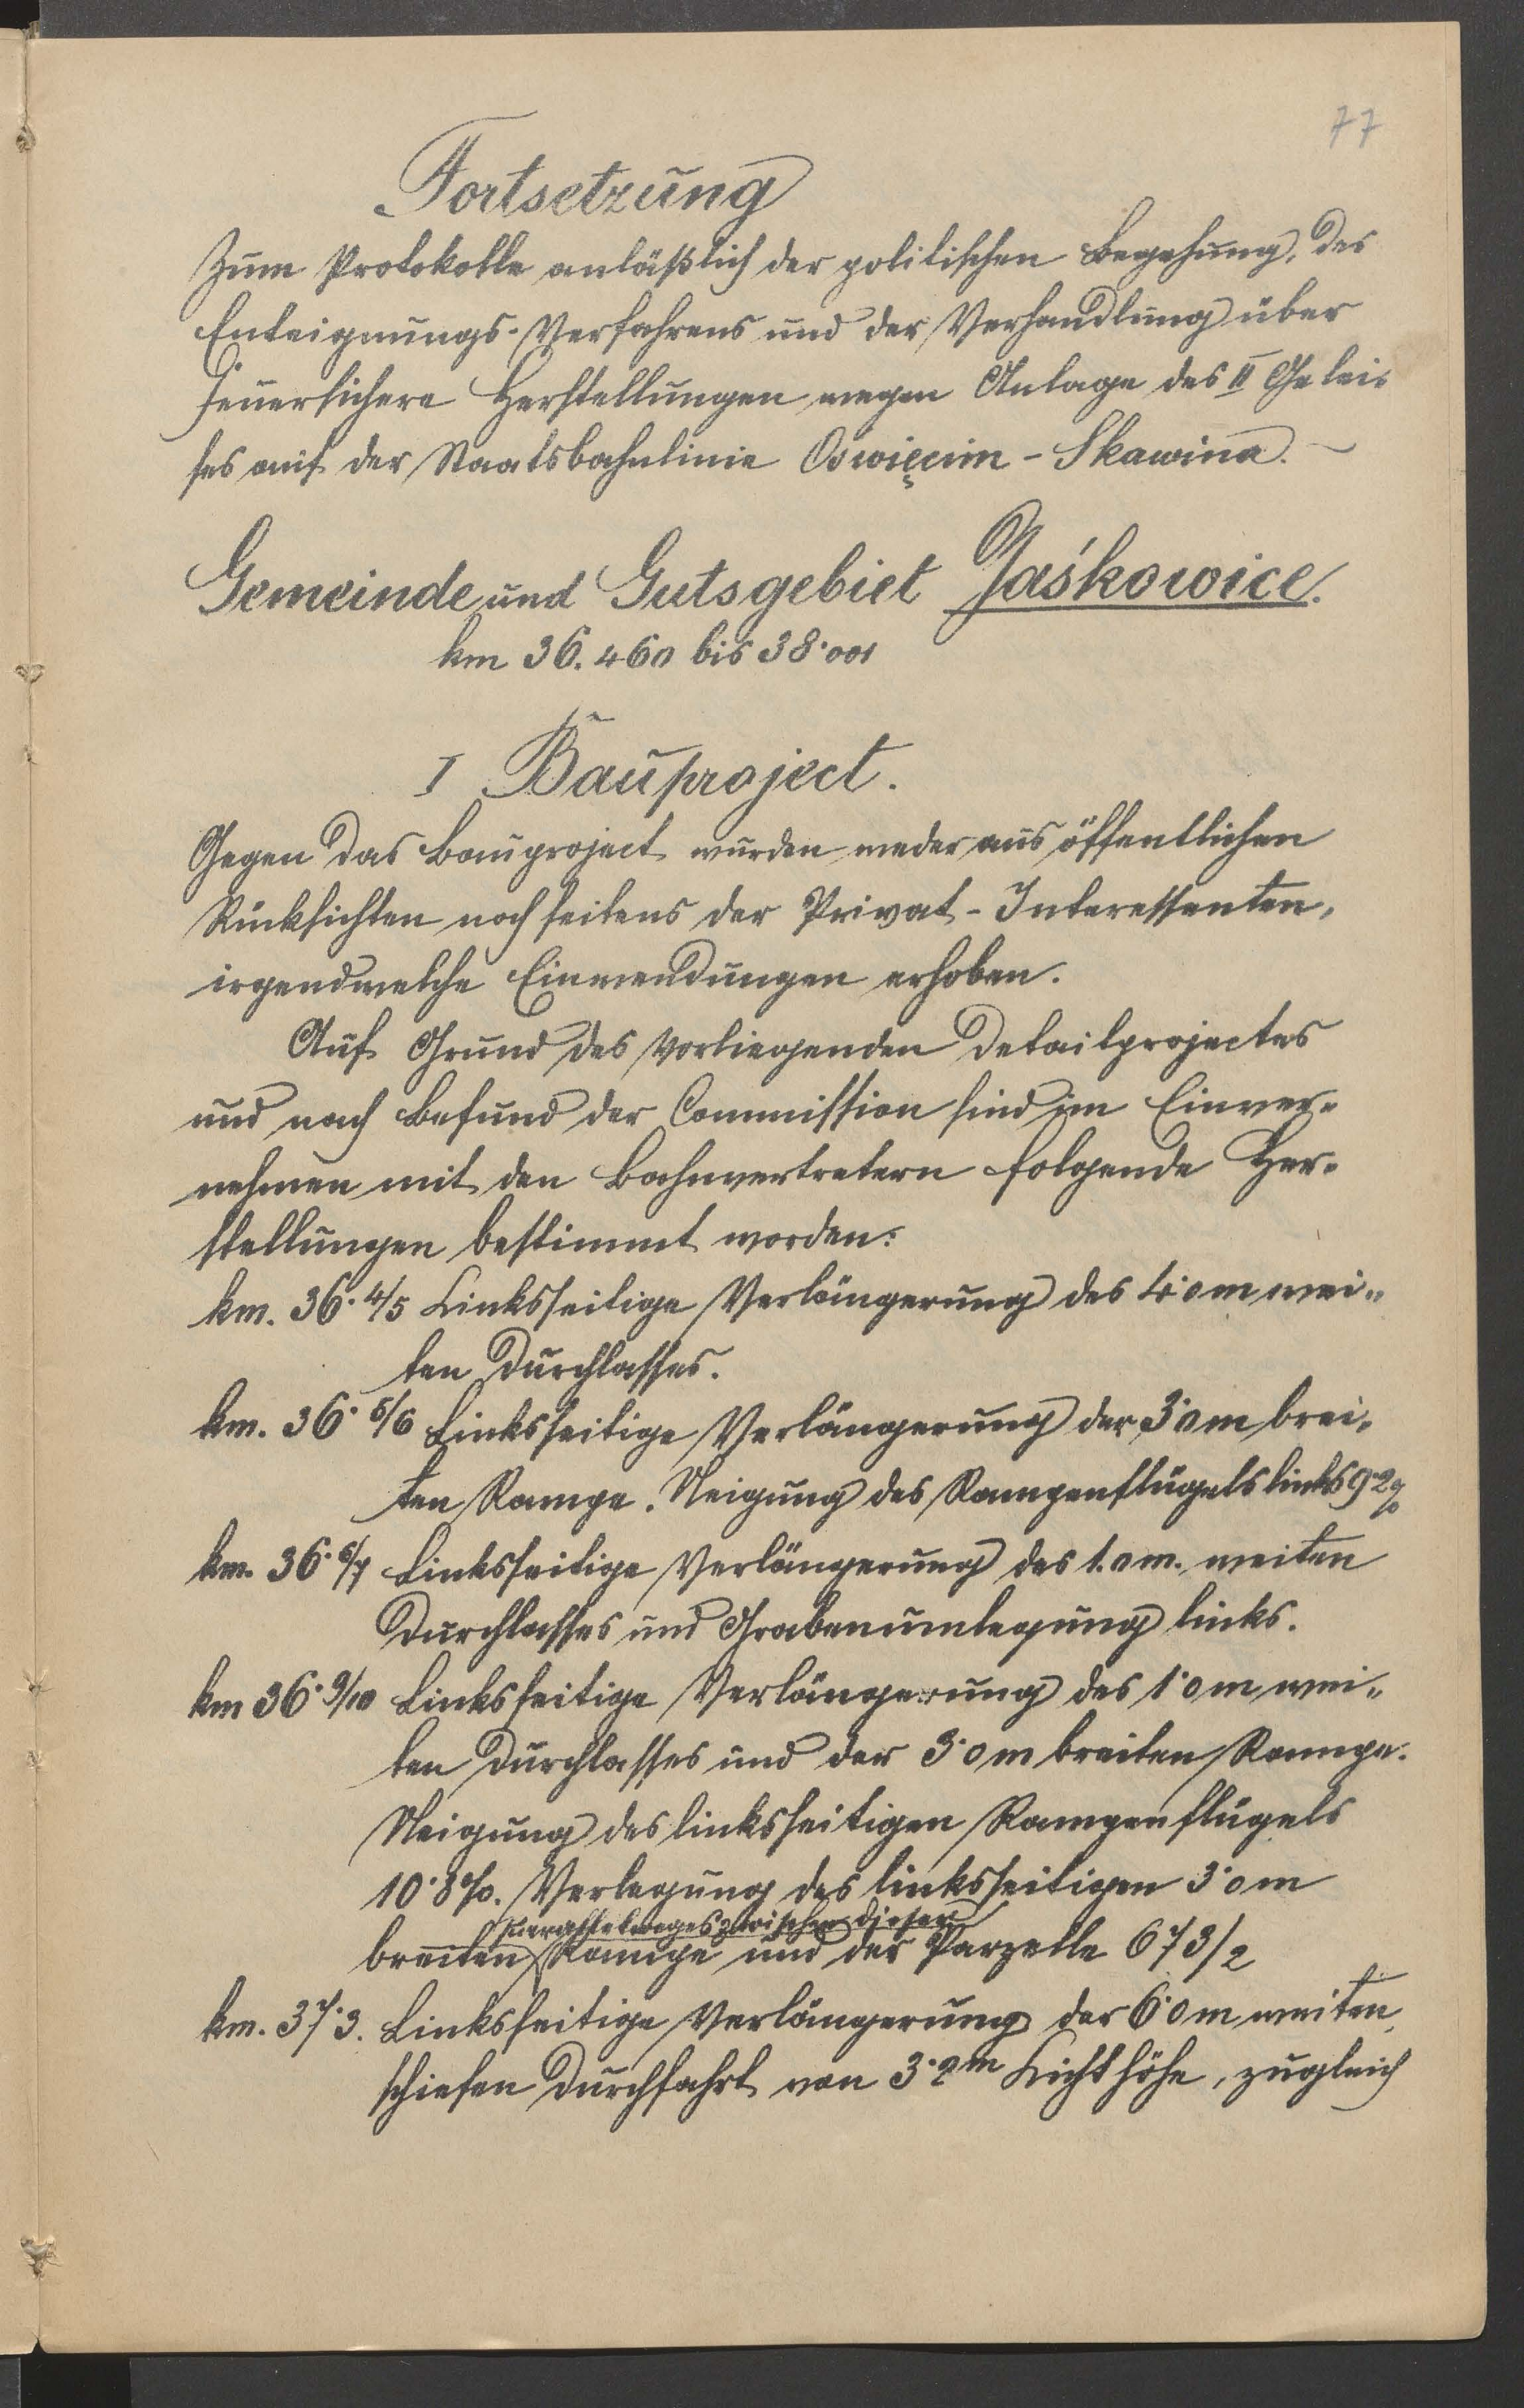 77
Fortsetzung
Zum Protokolle anläßlich der politischen Begehung, des
Enteignungs-Verfahrens und der Verhandlung über
feuersichere Herstellungen wegen Anlage des II Gelei-
ses auf der Staatsbahnlinie Oswięcim - Skawina. -
Gemeinde und Gutsgebiet Jaśkowice.
km 36.460 bis 38·001
I Bauproject.
Gegen das Bauproject wurden weder aus öffentlichen
Rücksichten noch seitens der Privat-Interessenten,
irgendwelche Einwendungen erhoben.
Auf Grund des vorliegenden Detailprojectes
und nach Befund der Commission sind im Einver-
nehmen mit den Bahnvertretern folgende Her-
stellungen bestimmt worden:
km. 36·4/5 Linksseitige Verlängerung des 4·0 m wei-
ten Durchlasses.
km. 36·5/6 Linksseitige Verlängerung der 3·0 m brei-
ten Rampe. Neigung des Rampenflügels links 9·2%
km. 36·6/7 Linksseitige Verlängerung des 1.0 m. weiten
Durchlasses und Grabenumlegung links.
km 36·9/10 Linksseitige Verlängerung des 1·0 m wei-
ten Durchlasses und der 3·0 m breiten Rampe.
Neigung des linksseitigen Rampenflügels
10·8%. Verlegung des linksseitigen 3·0 m
zwischen dieser
breiten Rampe und der Parzelle 673/2
km. 37·3. Linksseitige Verlängerung der 6·0 m weiten,
schiefen Durchfahrt von 3·2 m Lichthöhe, zugleich